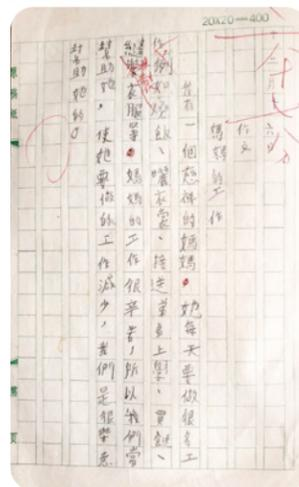 20X20=400
十二月七日
六分
作文
媽媽的工作
我有一個慈祥的媽媽。她每天要做很多工
作，例如燒飯、曬衣裳、接送弟弟上學、買餸、
衣服等。媽媽的工作很辛苦，所以我們當
幫助她，使她要做的工作減少，我們是很樂意
幫助她的。
原稿紙
頁